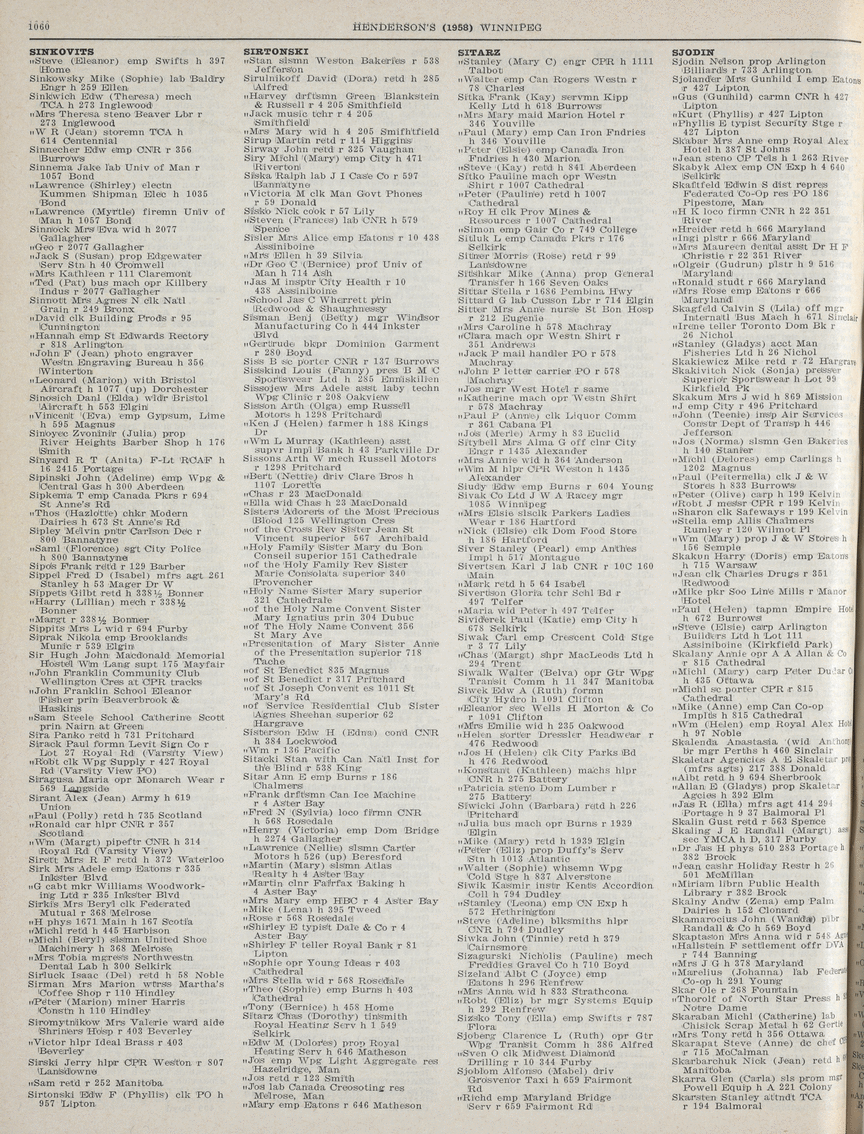 1060
HENDERSON'S (1958) WINNIPEG
SINKOVITS
"Steve (Eleanor) emp Swifts h 397
Home
Sinkowsky Mike (Sophie) lab Baldry
Engr h 259 Ellen
Sinkwich Edw (Theresa) mech
TCA h 273 Inglewood
"Mrs Theresa steno Beaver Lbr r
273 Inglewood
"W R (Jean) storemn TCA h
614 Centennial
Sinnecher Edw emp CNR r 356
Burrows
Sinnema Jake lab Univ of Man r
1057 Bond
"Lawrence (Shirley) electn
Kummen Shipman Elec h 1035
Bond
"Lawrence (Myrtle) firemn Univ of
Man h 1057 Bond
Sinnock Mrs Eva wid h 2077
Gallagher
"Geo r 2077 Gallagher
"Jack S (Susan) prop Edgewater
Serv Stn h 40 Cromwell
"Mrs Kathleen r 111 Claremont
"Ted (Pat) bus mach opr Killbery
Indus r 2077 Gallagher
Sinnott Mrs Agnes N clk Natl
Grain r 249 Bronx
"David clk Building Prods r 95
Cunnington
"Hannah emp St Edwards Rectory
r 818 Arlington
"John F (Jean) photo engraver
Westn Engraving Bureau h 356
Winterton
"Leonard (Marion) with Bristol
Aircraft h 1077 (up) Dorchester
Sinosich Danl (Elda) wldr Bristol
Aircraft h 553 Elgin
"Vincent (Eva) emp Gypsum, Lime
h 595 Magnus
Sinoyec Zvonimir (Julia) prop
River Heights Barber Shop h 176
Smith
Sinyard R T (Anita) F-Lt RCAF h
16 2415 Portage
Sipinski John (Adeline) emp Wpg &
Central Gas h 300 Aberdeen
Sipkema T emp Canada Pkrs r 694
St Anne's Rd
"Thos (Hazlotte) chkr Modern
Dairies h 673 St Anne's Rd
Sipley Melvin pntr Carlson Dec r
800 Bannatyne
"Saml (Florence) sgt City Police
h 800 Bannatyne
Sipos Frank retd h 129 Barber
Sippel Fred D (Isabel) mfrs agt 261
Stanley h 53 Mager Dr W
Sippets Gilbt retd h 338½ Bonner
"Harry (Lillian) mech r 338½
Bonner
"Margt r 338½ Bonner
Sippits Mrs L wid r 694 Furby
Siprak Nikola emp Brooklands
Munic r 539 Elgin
Sir Hugh John Macdonald Memorial
Hostel Wm Lang supt 175 Mayfair
"John Franklin Community Club
Wellington Cres at CPR tracks
"John Franklin School Eleanor
Fisher prin Beaverbrook &
Haskins
"Sam Steele School Catherine Scott
prin Nairn at Green
Sira Panko retd h 731 Pritchard
Sirack Paul formn Levit Sign Co r
Lot 27 Royal Rd (Varsity View)
"Robt clk Wpg Supply r 427 Royal
Rd (Varsity View PO)
Siragusa Maria opr Monarch Wear r
569 Langside
Sirant Alex (Jean) Army h 619
Union
"Paul (Polly) retd h 735 Scotland
"Ronald car hlpr CNR r 357
Scotland
"Wm (Margt) pipeftr CNR h 314
Royal Rd (Varsity View)
Sirett Mrs R F retd h 372 Waterloo
Sirk Mrs Adele emp Eatons r 335
Inkster Blvd
"G cabt mkr Williams Woodwork-
ing Ltd r 335 Inkster Blvd
Sirkis Mrs Beryl clk Federated
Mutual r 368 Melrose
"H phys 1671 Main h 167 Scotia
"Michl retd h 445 Harbison
"Michl (Beryl) slsmn United Shoe
Machinery h 368 Melrose
"Mrs Tobia mgress Northwestn
Dental Lab h 300 Selkirk
Sirluck Isaac (Del) retd h 58 Noble
Sirman Mrs Marion wtrss Martha's
Coffee Shop r 110 Hindley
"Peter (Marion) miner Harris
Constn h 110 Hindley
Siromytnikow Mrs Valerie ward aide
Shriners Hosp r 403 Beverley
"Victor hlpr Ideal Brass r 403
Beverley
Sirski Jerry hlpr CPR Weston r 807
Lansdowne
"Sam retd r 252 Manitoba
Sirtonski Edw F (Phyllis) clk PO h
957 Lipton
SIRTONSKI
"Stan slsmn Weston Bakeries r 538
Jefferson
Sirulnikoff David (Dora) retd h 285
Alfred
"Harvey drftsmn Green Blankstein
& Russell r 4 205 Smithfield
"Jack music tchr r 4 205
Smithfield
"Mrs Mary wid h 4 205 Smithfield
Sirup Martin retd r 114 Higgins
Sirway John retd r 325 Vaughan
Siry Michl (Mary) emp City h 471
Riverton
Siska Ralph lab J I Case Co r 597
Bannatyne
"Victoria M clk Man Govt Phones
r 59 Donald
Sisko Nick cook r 57 Lily
"Steven (Frances) lab CNR h 579
Spence
Sisler Mrs Alice emp Eatons r 10 438
Assiniboine
"Mrs Ellen h 39 Silvia
"Dr Geo C (Bernice) prof Univ of
Man h 714 Ash
"Jas M insptr City Health r 10
438 Assiniboine
"School Jas C Wherrett prin
Redwood & Shaughnessy
Sisman Benj (Betty) mgr Windsor
Manufacturing Co h 444 Inkster
Blvd
"Gertrude bkpr Dominion Garment
r 280 Boyd
Siss B sc porter CNR r 137 Burrows
Sisskind Louis (Fanny) pres B M C
Sportswear Ltd h 285 Enniskillen
Sissojew Mrs Adele asst laby techn
Wpg Clinic r 208 Oakview
Sisson Arth (Olga) emp Russell
Motors h 1298 Pritchard
"Ken J (Helen) farmer h 188 Kings
Dr
"Wm L Murray (Kathleen) asst
supvr Impl Bank h 43 Parkville Dr
Sissons Arth W mech Russell Motors
r 1298 Pritchard
"Bert (Nettie) driv Clare Bros h
1107 Lorette
"Chas r 23 MacDonald
"Ella wid Chas h 23 MacDonald
Sisters Adorers of the Most Precious
Blood 125 Wellington Cres
"of the Cross Rev Sister Jean St
Vincent superior 567 Archibald
"Holy Family Sister Mary du Bon
Conseil superior 151 Cathedrale
"of the Holy Family Rev Sister
Marie Consolata superior 340
Provencher
"Holy Name Sister Mary superior
321 Cathedrale
"of the Holy Name Convent Sister
Mary Ignatius prin 304 Dubuc
"of The Holy Name Convent 356
St Mary Ave
"Presentation of Mary Sister Anne
of the Presentation superior 718
Tache
"of St Benedict 835 Magnus
"of St Benedict r 317 Pritchard
"of St Joseph Convent es 1011 St
Mary's Rd
"of Service Residential Club Sister
Agnes Sheehan superior 62
Hargrave
Sisterson Edw H (Edna) cond CNR
h 384 Lockwood
"Wm r 136 Pacific
Sitacki Stan with Can Natl Inst for
the Blind r 538 King
Sitar Ann E emp Burns r 186
Chalmers
"Frank drftsmn Can Ice Machine
r 4 Aster Bay
"Fred N (Sylvia) loco firmn CNR
h 568 Rosedale
"Henry (Victoria) emp Dom Bridge
h 2274 Gallagher
"Lawrence (Nellie) slsmn Carter
Motors h 526 (up) Beresford
"Martin (Mary) slsmn Atlas
Realty h 4 Aster Bay
"Martin clnr Fairfax Baking h
4 Aster Bay
"Mrs Mary emp HBC r 4 Aster Bay
"Mike (Lena) h 395 Tweed
"Rose r 568 Rosedale
"Shirley E typist Dale & Co r 4
Aster Bay
"Shirley F teller Royal Bank r 81
Lipton
"Sophie opr Young Ideas r 403
Cathedral
"Mrs Stella wid r 568 Rosedale
"Theo (Sophie) emp Burns h 403
Cathedral
"Tony (Bernice) h 458 Home
Sitarz Chas (Dorothy) tinsmith
Royal Heating Serv h 1 549
Selkirk
"Edw M (Dolores) prop Royal
Heating Serv h 646 Matheson
"Jos emp Wpg Light Aggregate res
Hazelridge, Man
"Jos retd r 123 Smith
"Jos lab Canada Creosoting res
Melrose, Man
"Mary emp Eatons r 646 Matheson
SITARZ
"Stanley (Mary C) engr CPR h 1111
Talbot
"Walter emp Can Rogers Westn r
78 Charles
Sitka Frank (Kay) servmn Kipp
Kelly Ltd h 618 Burrows
"Mrs Mary maid Marion Hotel r
346 Youville
"Paul (Mary) emp Can Iron Fndries
h 346 Youville
"Peter (Elsie) emp Canada Iron
Fndries h 430 Marion
"Steve (Kay) retd h 841 Aberdeen
Sitko Pauline mach opr Westn
Shirt r 1007 Cathedral
"Peter (Pauline) retd h 1007
Cathedral
"Roy H clk Prov Mines &
Resources r 1007 Cathedral
"Simon emp Gair Co r 749 College
Sitluk L emp Canada Pkrs r 176
Selkirk
Sitner Morris (Rose) retd r 99
Lansdowne
Sitishkar Mike (Anna) prop General
Transfer h 166 Seven Oaks
Sittar Stella r 1686 Pembina Hwy
Sittard G lab Cusson Lbr r 714 Elgin
Sitter Mrs Anne nurse St Bon Hosp
r 212 Eugenie
"Mrs Caroline h 578 Machray
"Clara mach opr Westn Shirt r
351 Andrews
"Jack P mail handler PO r 578
Machray
"John P letter carrier PO r 578
Machray
"Jos mgr West Hotel r same
"Katherine mach opr Westn Shirt
r 578 Machray
"Paul P (Anne) clk Liquor Comm
r 361 Cabana Pl
"Jos (Merle) Army h 83 Euclid
Sitybell Mrs Alma G off clnr City
Engr r 1435 Alexander
"Mrs Annie wid h 364 Anderson
"Wm M hlpr CPR Weston h 1435
Alexander
Siudy Edw emp Burns r 604 Young
Sivak Co Ltd J W A Racey mgr
1085 Winnipeg
"Mrs Elsie slsclk Parkers Ladies
Wear r 186 Hartford
"Nick (Elsie) clk Dom Food Store
h 186 Hartford
Siver Stanley (Pearl) emp Anthes
Impl h 517 Montague
Sivertsen Karl J lab CNR r 10C 160
Main
"Mark retd h 5 64 Isabel
Sivertson Gloria tchr Schl Bd r
497 Telfer
"Maria wid Peter h 497 Telfer
Sividerek Paul (Katie) emp City h
678 Selkirk
Siwak Carl emp Crescent Cold Stge
r 3 77 Lily
"Chas (Margt) shpr MacLeods Ltd h
294 Trent
Siwalk Walter (Belva) opr Gtr Wpg
Transit Comm h 11 347 Manitoba
Siwek Edw A (Ruth) formn
City Hydro h 1091 Clifton
"Eleanor sec Wells H Morton & Co
r 1091 Clifton
"Mrs Emilie wid h 235 Oakwood
"Helen sorter Dressler Headwear r
476 Redwood
"Jos H (Helen) clk City Parks Bd
h 476 Redwood
"Konstant (Kathleen) machs hlpr
CNR h 275 Battery
"Patricia steno Dom Lumber r
275 Battery
Siwicki John (Barbara) retd h 226
Pritchard
"Julia bus mach opr Burns r 1939
Elgin
"Mike (Mary) retd h 1939 Elgin
"Peter (Eliz) prop Duffy's Serv
Stn h 1013 Atlantic
"Walter (Sophie) whsemn Wpg
Cold Stge h 837 Alverstone
Siwik Kasmir instr Kents Accordion
Coll h 794 Dudley
"Stanley (Leona) emp CN Exp h
572 Hethrington
"Steve (Adeline) blksmiths hlpr
CNR h 794 Dudley
Siwka John (Tinnie) retd h 379
Cairnsmore
Sizagurski Nicholis (Pauline) mech
Freddies Gravel Co h 710 Boyd
Sizeland Albt C (Joyce) emp
Eatons h 296 Renfrew
"Mrs Anna wid h 833 Strathcona
"Robt (Eliz) br mgr Systems Equip
h 292 Renfrew
Sizsko Tony (Ella) emp Swifts r 787
Flora
Sjoberg Clarence L (Ruth) opr Gtr
Wpg Transit Comm h 386 Alfred
"Sven O clk Midwest Diamond
Drilling r 10 344 Furby
Sjoblom Alfonso (Mabel) driv
Grosvenor Taxi h 659 Fairmont
Rd
"Richd emp Maryland Bridge
Serv r 659 Fairmont Rd
SJODIN
Sjodin Nelson prop Arlington
Billiards r 733 Arlington
Sjolander Mrs Gunhild I emp Eatons
r 427 Lipton
"Gus (Gunhild) carmn CNR h 427
Lipton
"Kurt (Phyllis) r 427 Lipton
"Phyllis E typist Security Stge r
427 Lipton
Skabar Mrs Anne emp Royal Alex
Hotel h 387 St Johns
"Jean steno CP Tels h 1 263 River
Skabyk Alex emp CN Exp h 4 640
Selkirk
Skaftfeld Edwin S dist repres
Federated Co-Op res PO 186
Pipestone, Man
"H K loco firmn CNR h 22 351
River
"Hreider retd h 666 Maryland
"Ingi plstr r 666 Maryland
"Mrs Maureen dental asst Dr H F
Christie r 22 351 River
"Olgeir (Gudrun) plstr h 9 516
Maryland
"Ronald studt r 666 Maryland
"Mrs Rose emp Eatons r 666
Maryland
Skagfeld Calvin S (Lila) off mgr
Internatl Bus Mach h 671 Sinclair
"Irene teller Toronto Dom Bk r
26 Nichol
"Stanley (Gladys) acct Man
Fisheries Ltd h 26 Nichol
Skakiewicz Mike retd r 72 Hargrave
Skakivitch Nick (Sonja) presser
Superior Sportswear h Lot 99
Kirkfield Pk
Skakum Mrs J wid h 869 Mission
"J emp City r 496 Pritchard
"John (Teenie) insp Air Services
Constr Dept of Transp h 446
Jefferson
"Jos (Norma) slsmn Gen Bakeries
h 140 Stanier
"Michl (Delores) emp Carlings h
1202 Magnus
"Paul (Peiternella) clk J & W
Stores h 833 Burrows
"Peter (Olive) carp h 199 Kelvin
"Robt J messr CPR r 199 Kelvin
"Sharon clk Safeways r 199 Kelvin
"Stella emp Allis Chalmers
Rumley r 120 Wilmot Pl
"Wm (Mary) prop J & W Stores h
156 Semple
Skakun Harry (Doris) emp Eatons
h 715 Warsaw
"Jean clk Charles Drugs r 351
Redwood
"Mike pkr Soo Line Mills r Manor
Hotel
"Paul (Helen) tapmn Empire Hotel
h 672 Burrows
"Steve (Elsie) carp Arlington
Builders Ltd h Lot 111
Assiniboine (Kirkfield Park)
Skalany Annie opr A A Allan & Co
r 815 Cathedral
"Michl (Mary) carp Peter Dudar
h 435 Ottawa
"Michl sc porter CPR r 815
Cathedral
"Mike (Anna) emp Can Co-op
Implts h 815 Cathedral
"Wm (Helen) emp Royal Alex
h 97 Noble
Skalenda Anastasia (wid Anthony
br mgr Perths h 460 Sinclair
Skaletar Agencies A E Skaletar
(mfrs agts) 217 388 Donald
"Albt retd h 9 694 Sherbrook
"Allan E (Gladys) prop Skaletar
Agcies h 392 Elm
"Jas R (Ella) mfrs agt 414 294
Portage h 9 37 Balmoral Pl
Skalin Gust retd r 563 Spence
Skaling J E Randall (Margt)
sec YMCA h D, 817 Furby
"Dr Jas H phys 510 283 Portage h
382 Brock
"Jean cashr Holiday Restr h 26
501 McMillan
"Miriam librn Public Health
Library r 382 Brock
Skalny Andw (Zena) emp Palm
Dairies h 152 Clonard
Skamarocius John (Wanda) plbr
Randall & Co h 569 Boyd
Skaptason Mrs Anna wid r 548
"Hallstein F settlement offr DVA
r 744 Banning
"Mrs J G h 378 Maryland
"Marelius (Johanna) lab
Co-op h 291 Young
Skar Ole r 268 Fountain
"Thorolf of North Star Press h
Notre Dame
Skaraban Michl (Catherine) lab
Chisick Scrap Metal h 62 Gertie
"Mrs Tony retd h 356 Ottawa
Skarapat Steve (Anne) dc chef
r 715 McCalman
Skarbarchuk Nick (Jean) retd h
Manitoba
Skarra Glen (Carla) sls prom mgr
Powell Equip h A 221 Colony
Skarsten Stanley attndt TCA
r 194 Balmoral